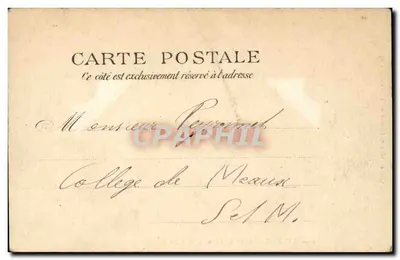 CARTE POSTALE
Ce côté est exclusivement réservé à l'adresse
Monsieur
CPAPHIL
College de Meaux
S et M.